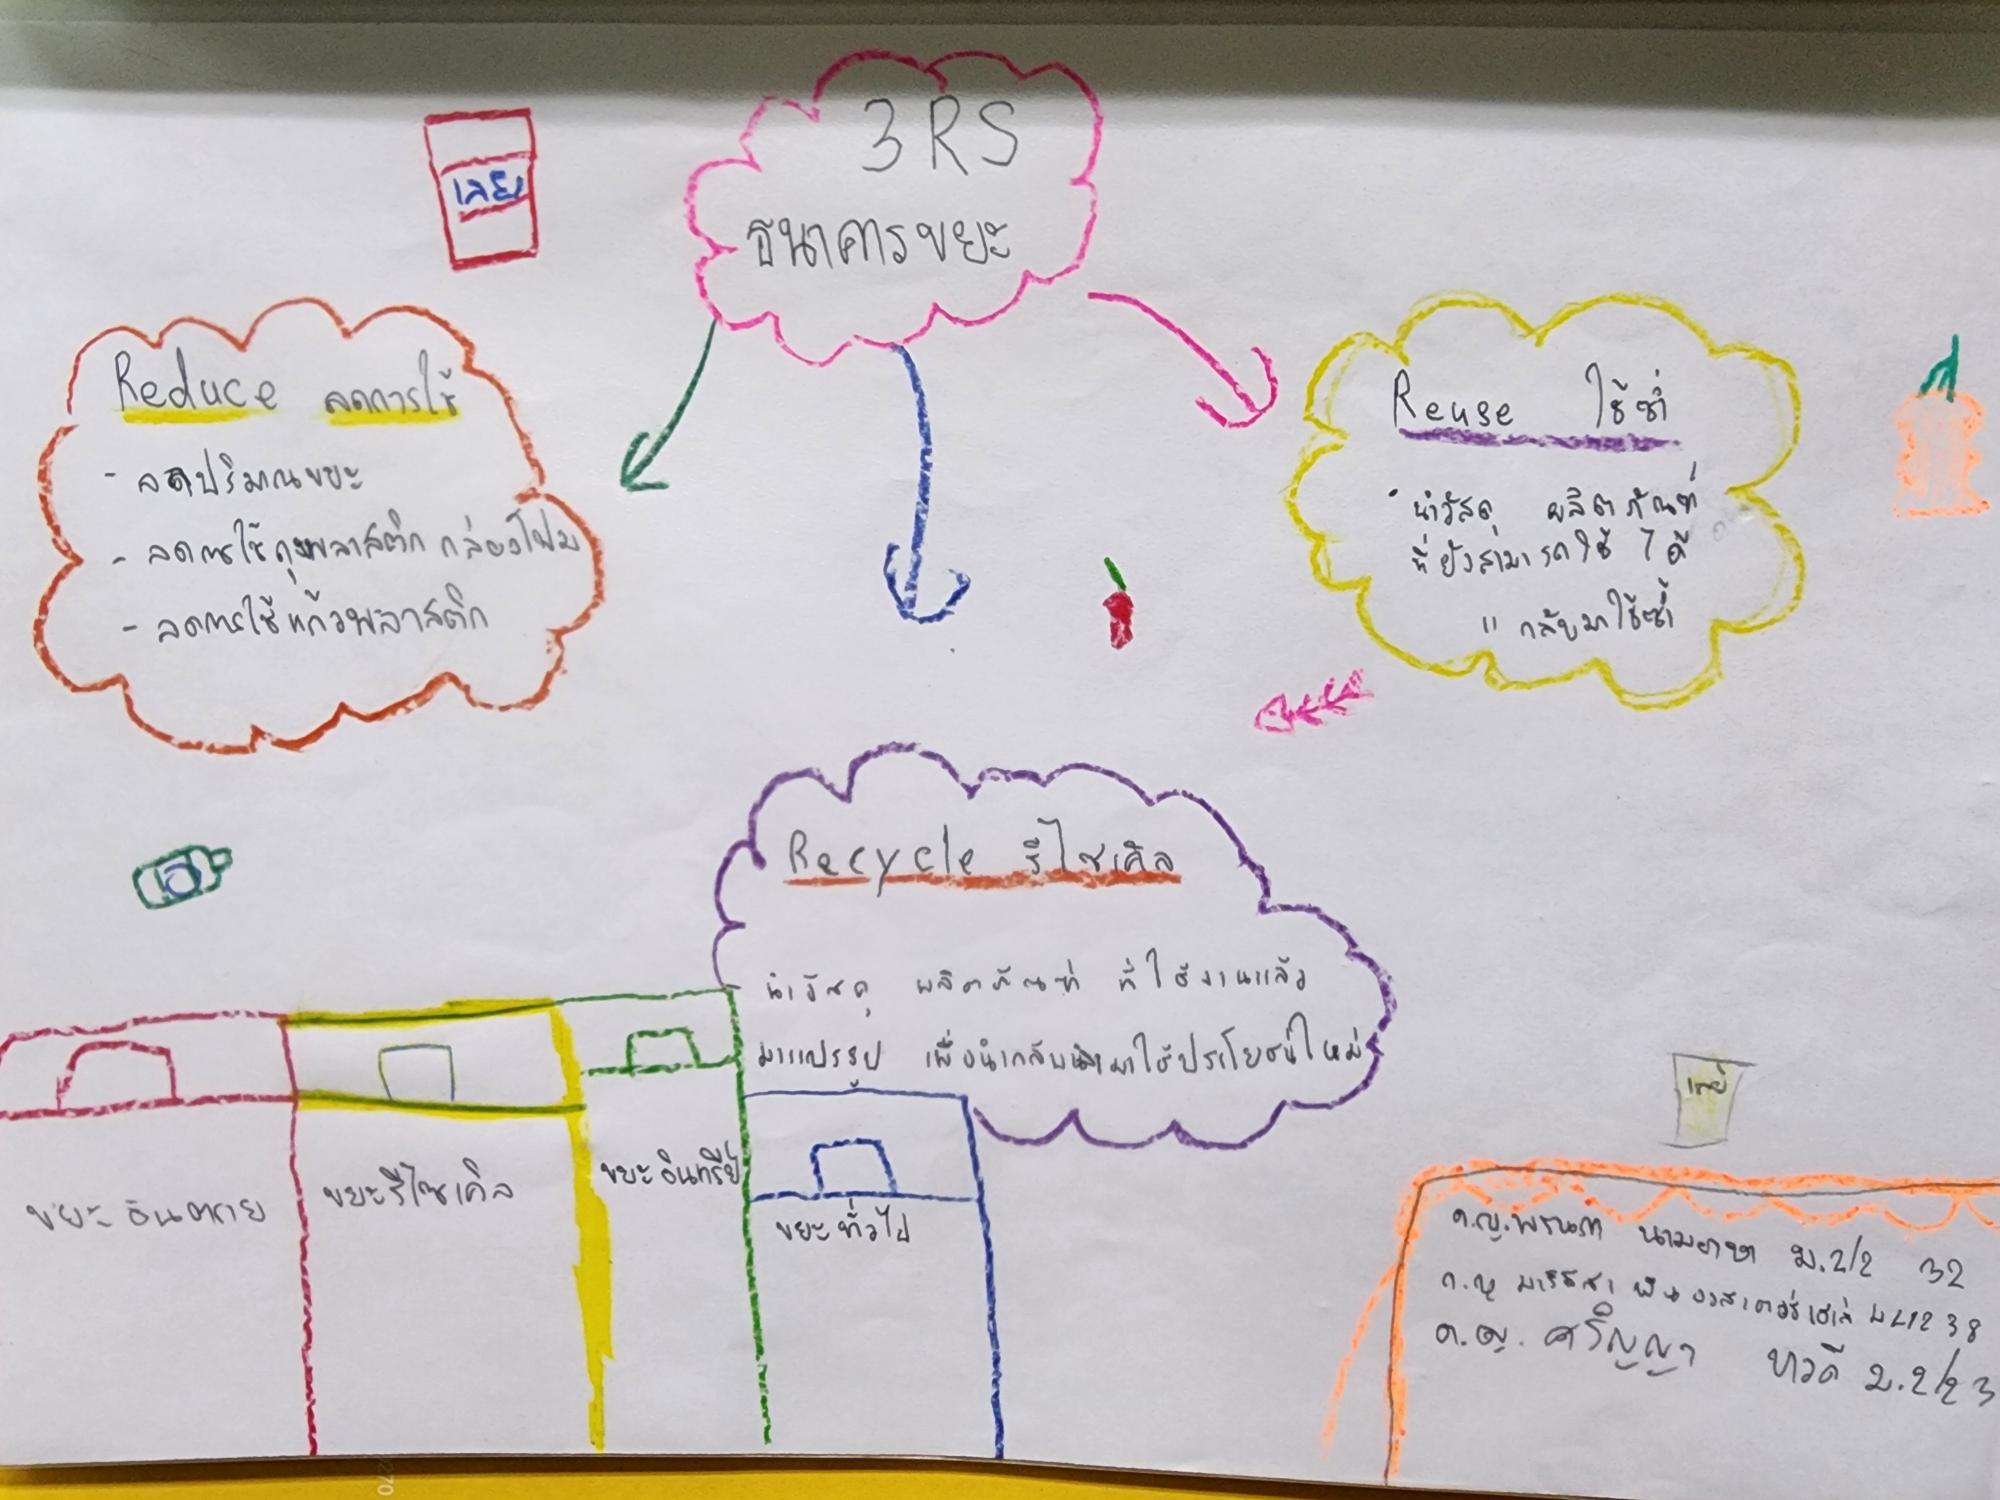 3RS
ธนาคารขยะ
เลย์
Reduce ลดการใช้
- ลดปริมาณขยะ
- ลดการใช้ถุงพลาสติก กล่องโฟม
- ลดการใช้แก้วพลาสติก
Reuse ใช้ซ้ำ
นำวัสดุ ผลิตภัณฑ์
ที่ยังสามารถใช้ได้
" กลับมาใช้ซ้ำ
Recycle รีไซเคิล
นำวัสดุ ผลิตภัณฑ์ ที่ใช้งานแล้ว
มาแปรรูป เพื่อนำกลับมาใช้ประโยชน์ใหม่
ขยะอันตราย
ขยะรีไซเคิล
ขยะอินทรีย์
ขยะทั่วไป
เลย์
ด.ญ. ม.2/2 32
ด.ญ มาริสา 38
ด.ญ. ศริญญา ขาวดี ม.2/2 3